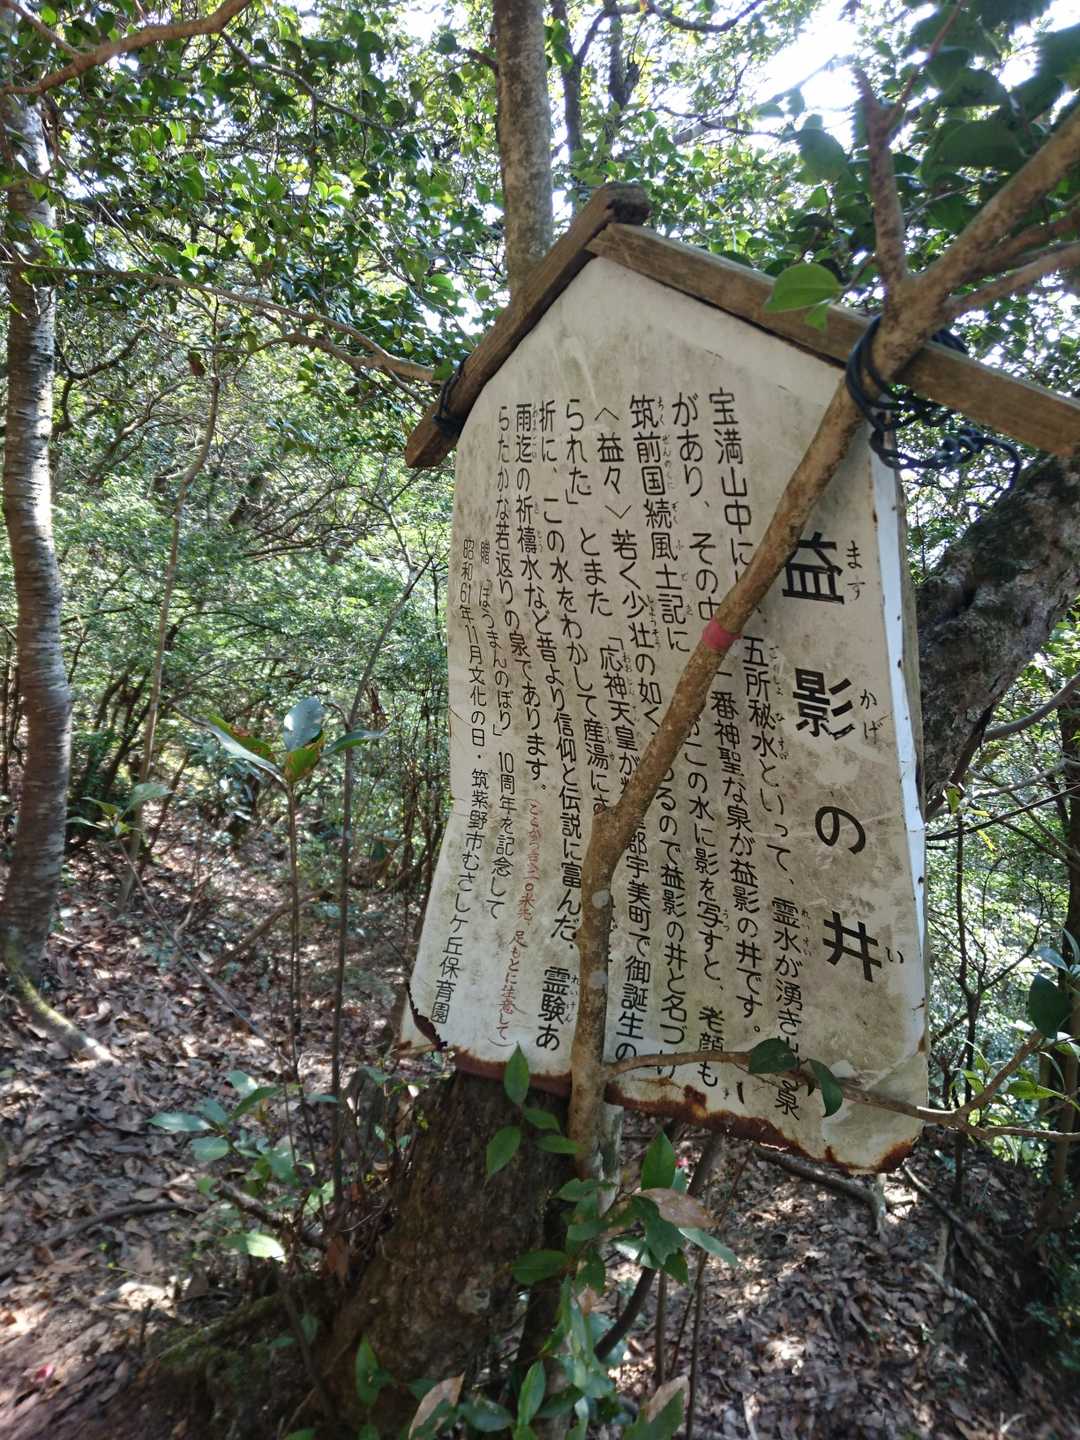 益影の井
宝満山中に 五所秘水といって、霊水が湧き 泉
があり、その 一番神聖な泉が益影の井です。
筑前国続風土記に この水に影を写すと、老顔も
〈益々〉若く少壮の如く るので益影の井と名づけ
られた」とまた「応神天皇が 郡宇美町で御誕生の
折に、この水をわかして産湯に
雨迄の祈禱水など昔より信仰と伝説に富んだ、霊験あ
らたかな若返りの泉であります。
足もとに注意して
贈 「ほうまんのぼり」10周年を記念して
昭和61年11月文化の日・筑紫野市むさしケ丘保育園